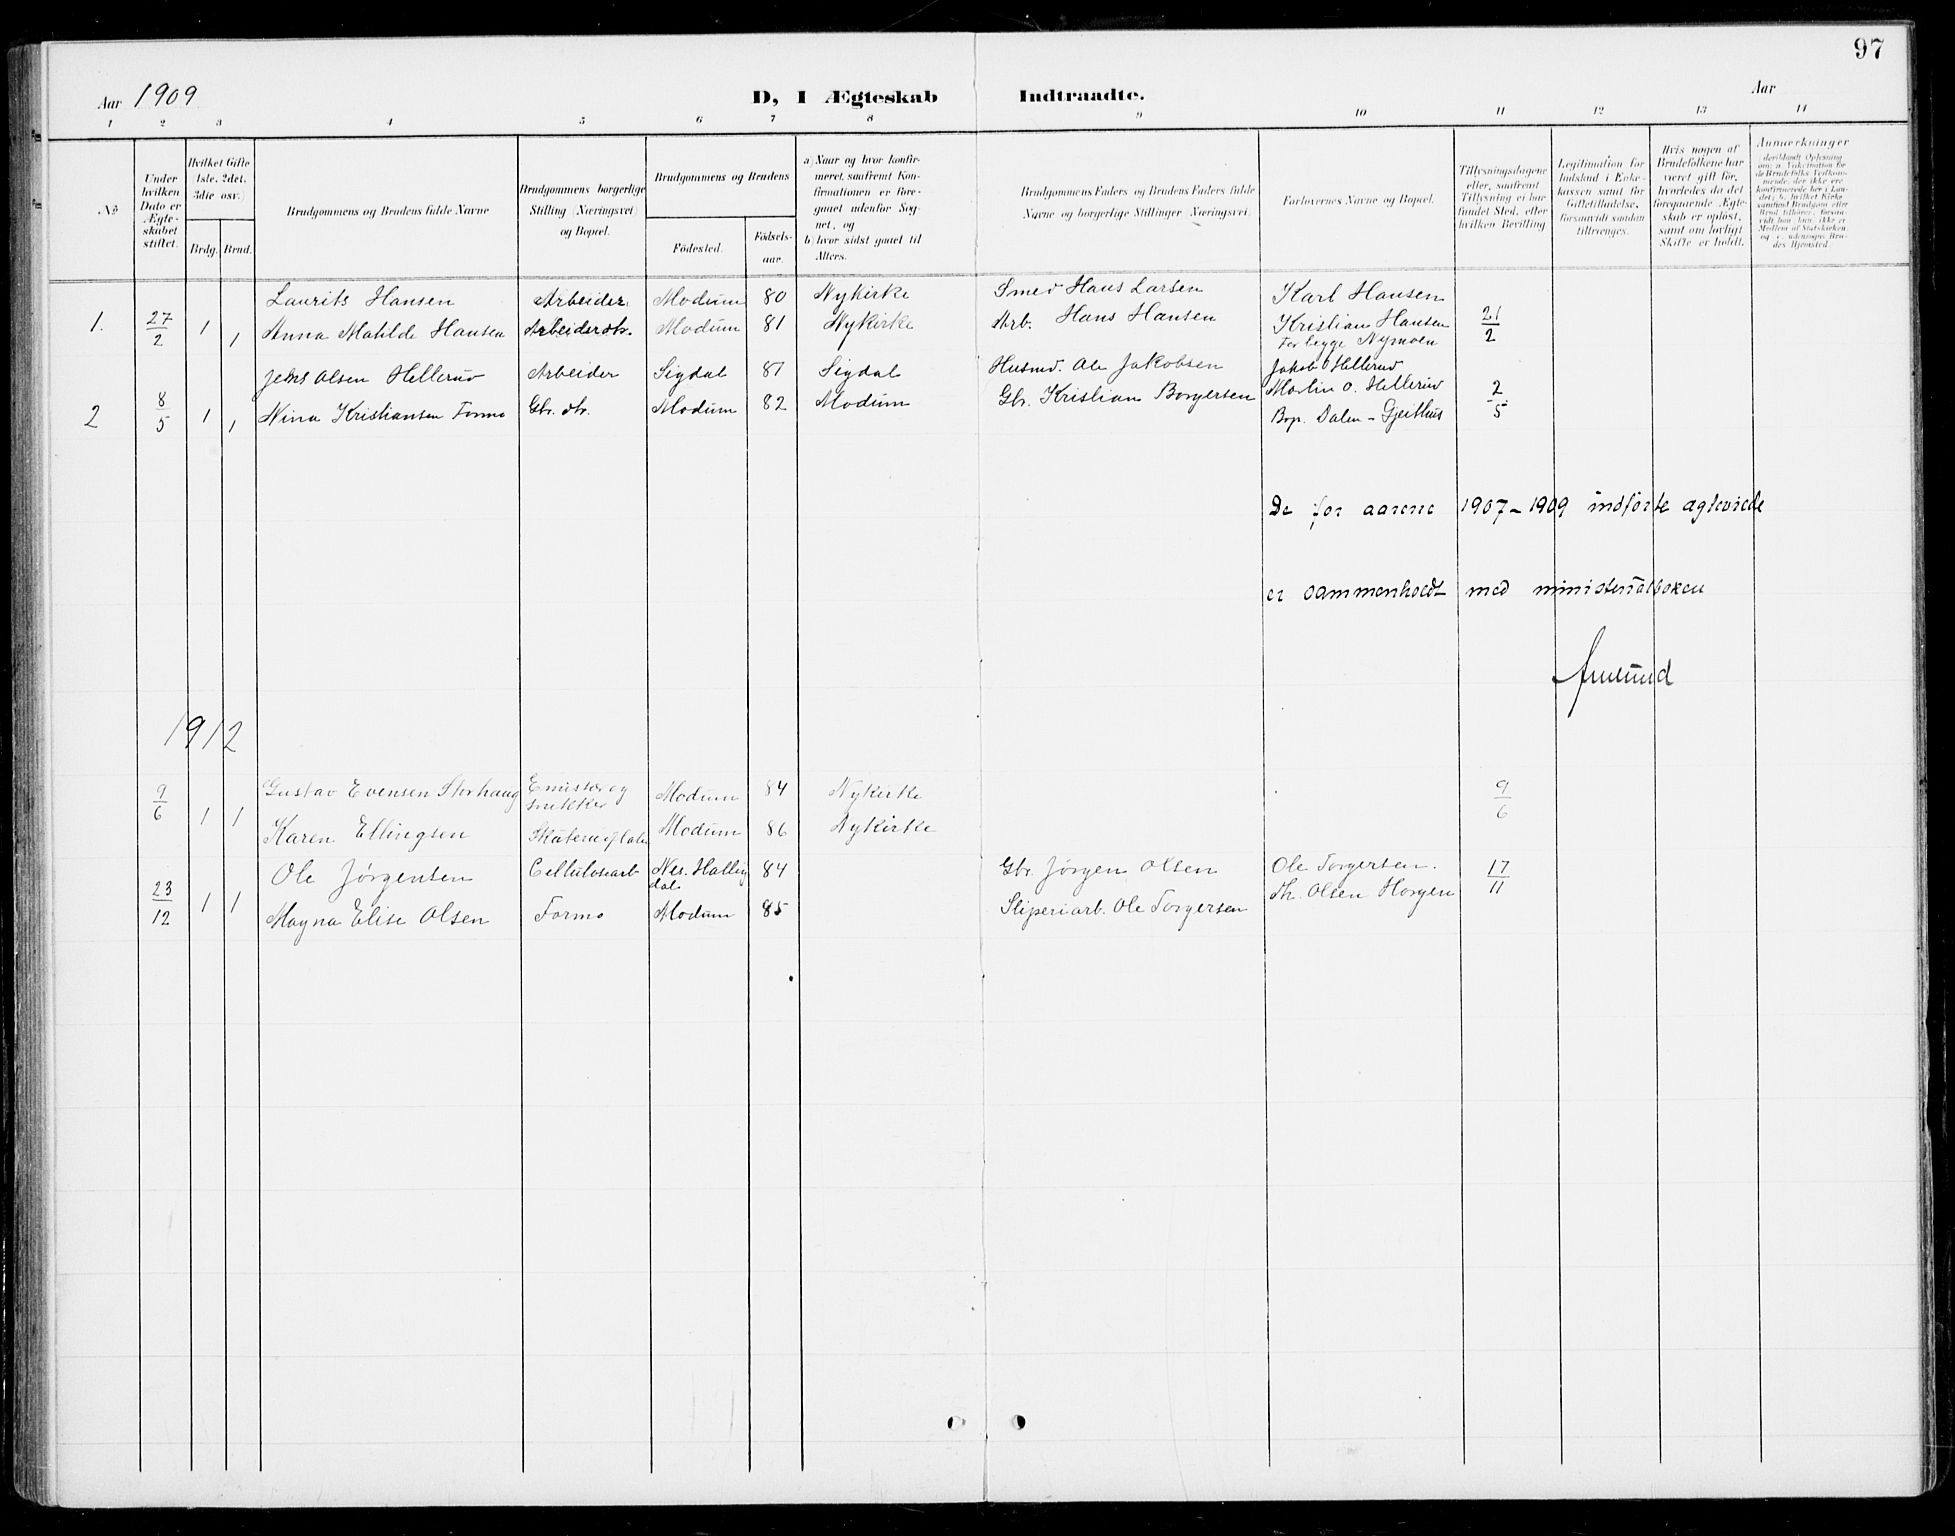 97
Aar 1909
D, I Ægteskab Indtraadte.
Aar
1 2 3 4 5 6 7 8 9 10 11 12 13 14
No
Under hvilken Dato er Ægteskabet stiftet.
Hvilket Gifte (1ste, 2det, 3die osv.)
Brdg. Brud.
Brudgommens og Brudens fulde Navne
Brudgommens borgerlige Stilling (Næringsvei) og Bopæl.
Brudgommens og Brudens
Fødested. Fødselsaar.
a) Naar og hvor konfirmeret, saafremt Konfirmationen er foregaaet udenfor Sognet, og
b) hvor sidst gaaet til Alters.
Brudgommens Faders og Brudens Faders fulde Navne og borgerlige Stillinger (Næringsvei).
Forlovernes Navne og Bopæl.
Tillysningsdagene eller, saafremt Tillysning ei har fundet Sted, efter hvilken Bevilling
Legitimation for Indskud i Enkekassen samt for Giftetilladelse, forsaavidt saadan tiltrænges.
Hvis nogen af Brudefolkene har været gift før, hvorledes da det foregaaende Ægteskab er opløst, samt om lovligt Skifte er holdt.
Anmærkninger
Laurits Hansen Arbeider Modum 80 Nykirke Smed Hans Larsen Karl Hansen
1. 27/2 1 1 Anna Matilde Hansen Arbeiderdtr. Modum 81 Nykirke Arb. Hans Hansen Kristian Hansen 21/2
For begge Nymoen
Jens Olsen Hellerud Arbeider Sigdal 87 Sigdal Husmd. Ole Jakobsen Jakob Hellerud
2 8/5 1 1 Nina Kristiansen Formo Gbr. dtr. Modum 82 Modum Gbr. Kristian Borgersen Martin O. Hellerud 2/5
Bop. Dalen - Gjeithus
De for aarene 1907-1909 indførte ægtevirde
er sammenholdt med ministerialboken
1912
9/6 1 1 Gustav Evensen Storhaug Emissær og snekker Modum 84 Nykirke 9/6
Karen Ellingsen Modum 86 Nykirke
23/12 1 1 Ole Jørgensen Cellulosearb Nes. Hallingdal 84 Gbr. Jørgen Olsen Ole Torgersen. 17/11
Magna Elise Olsen Formo Modum 85 Sliperiarb. Ole Torgersen Th. Olsen Horgen